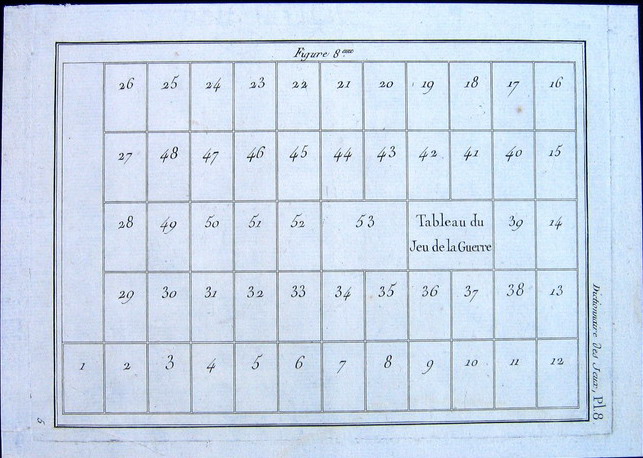 Figure 8.eme
26 25 24 23 22 21 20 19 18 17 16
27 48 47 46 45 44 43 42 41 40 15
28 49 50 51 52 53 Tableau du 39 14
Jeu de la Guerre
29 30 31 32 33 34 35 36 37 38 13
1 2 3 4 5 6 7 8 9 10 11 12
Dictionnaire des Jeux, Pl.8
5